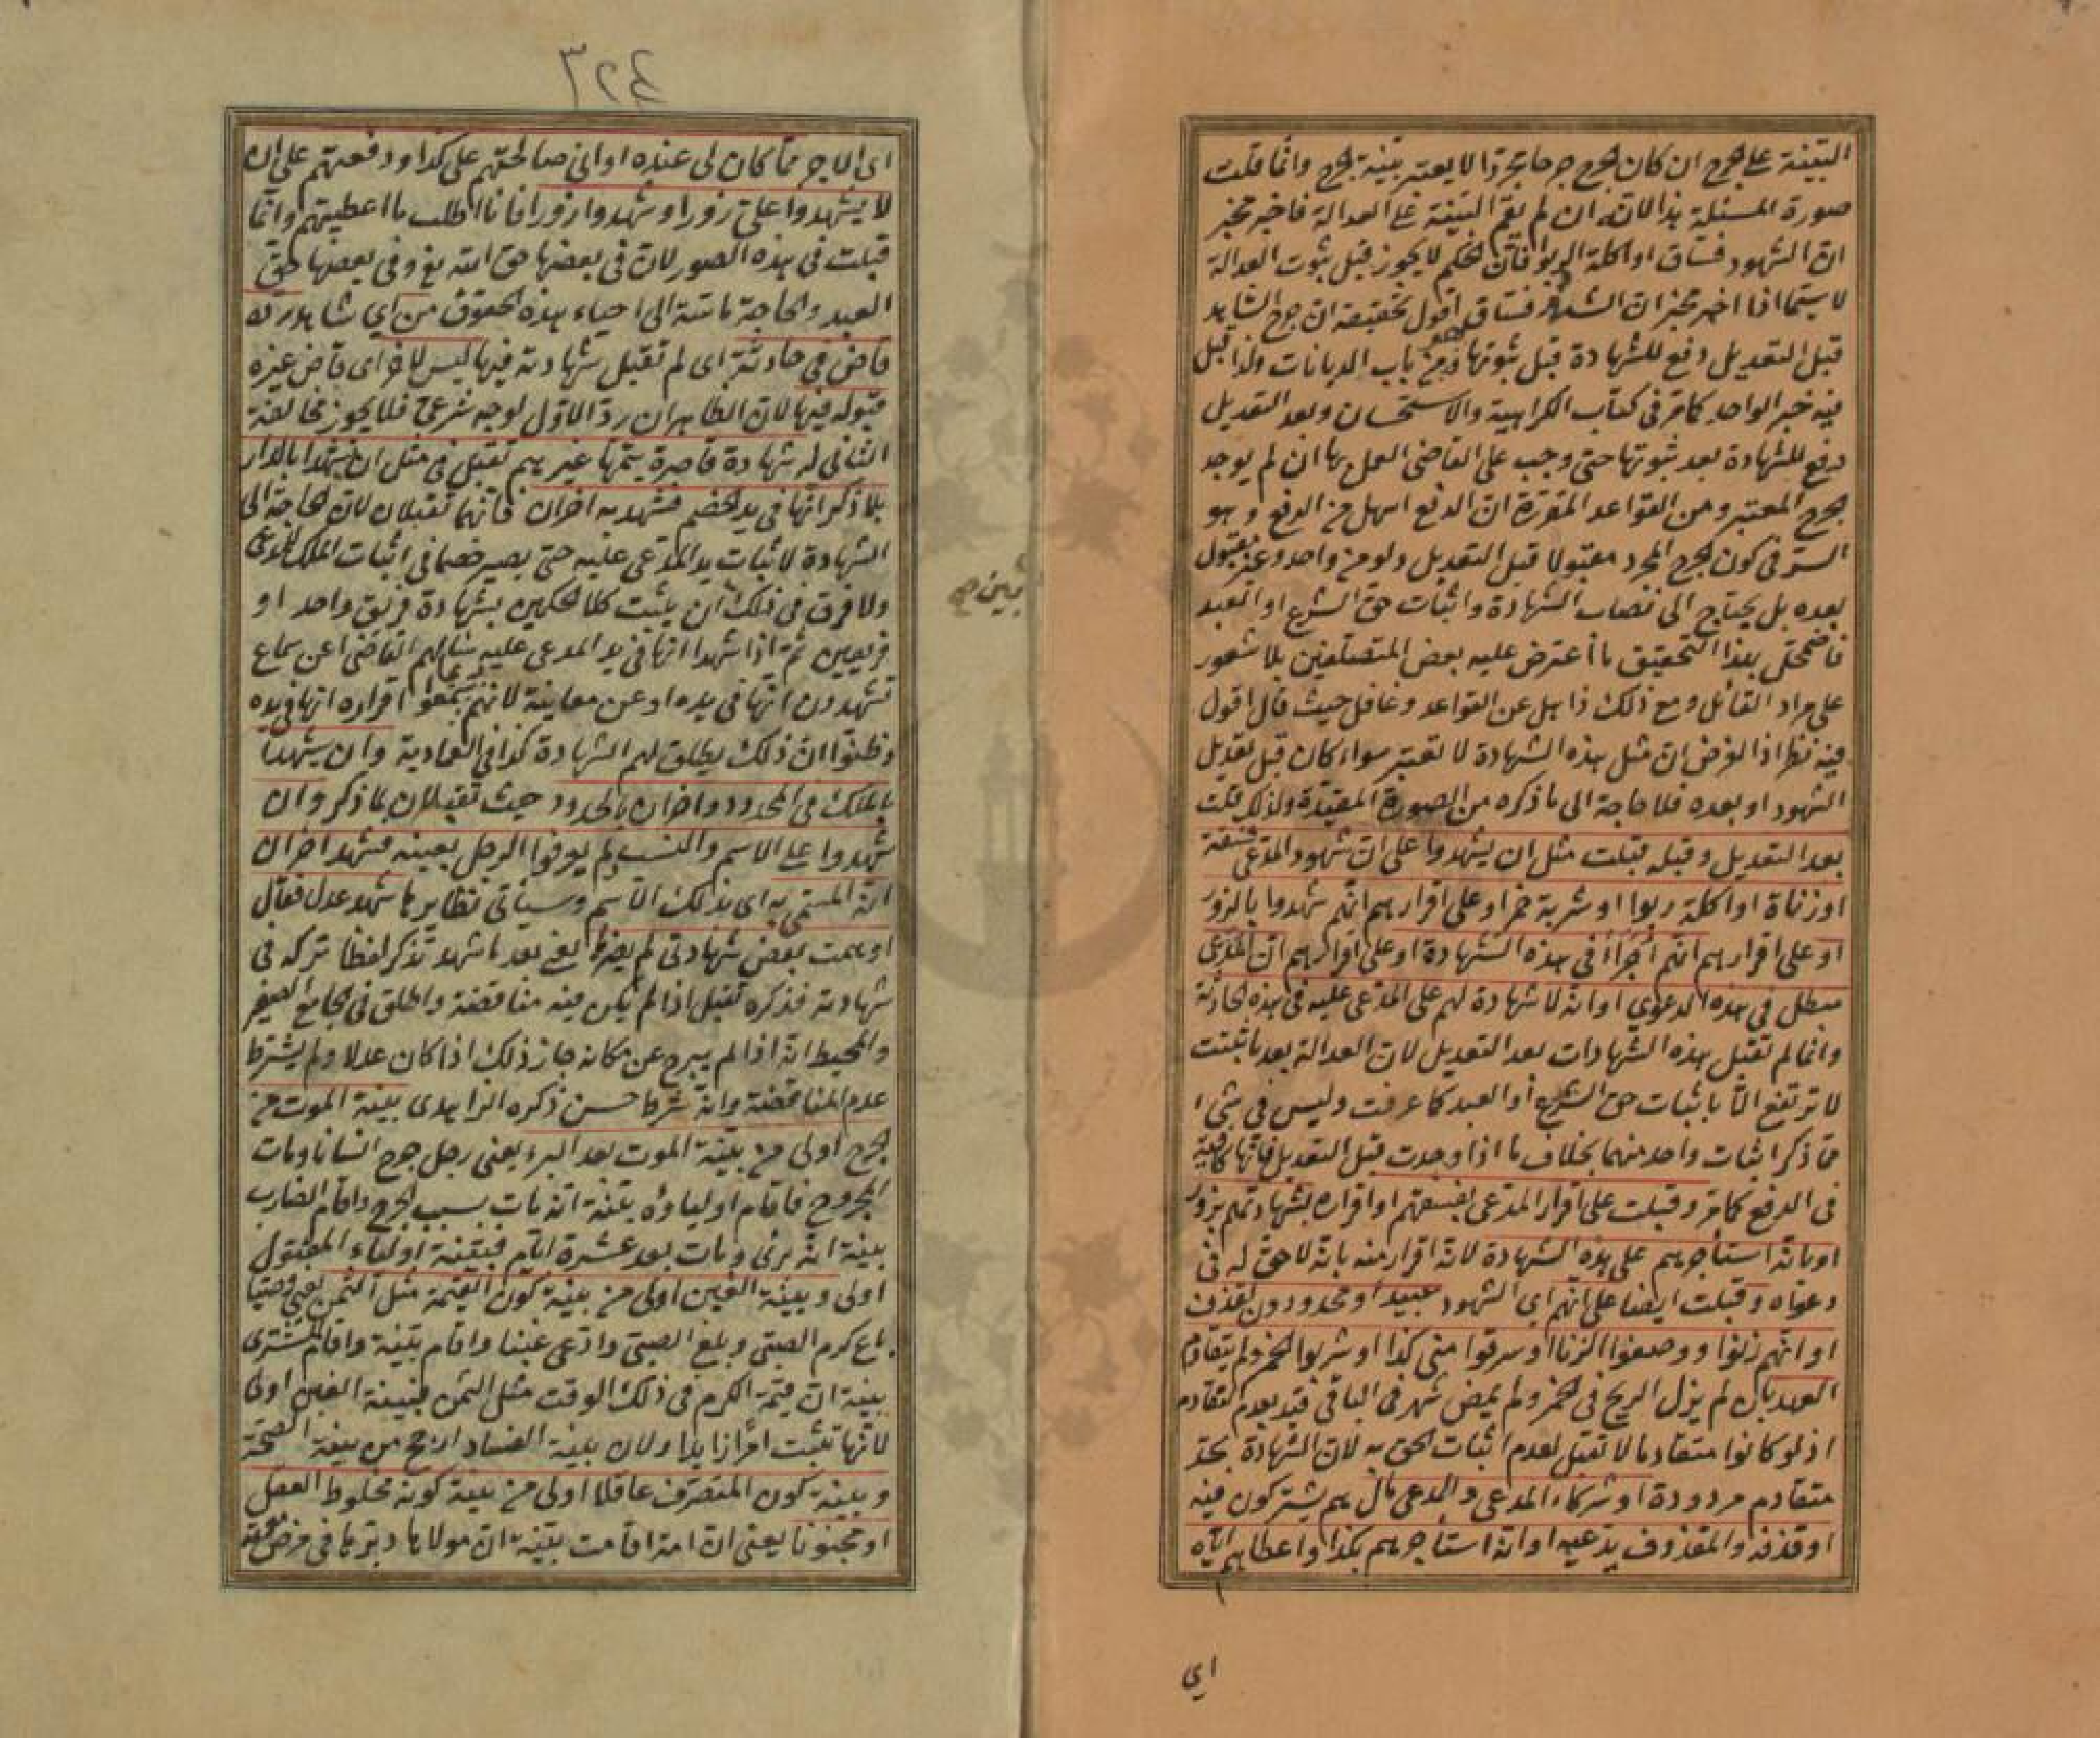 البينة على الجرح ان كان الجرح جرحا مجردا لا يعتبر بينة الجرح وانما قلت
صورة المسئلة هذا لانه ان لم يقم البينة على العدالة فاخبر مخبر
ان الشهود فساق او اكلة الربوا فان الحكم لا يجوز قبل ثبوت العدالة
لا سيما اذا اخبر مخبر ان الشهود فساق اقول تحقيقه ان جرح الشاهد
قبل التعديل دفع للشهادة قبل ثبوتها وهو من باب الديانات ولذا قبل
فيه خبر الواحد كما مر في كتاب الكراهية والاستحسان وبعد التعديل
رفع للشهادة بعد ثبوتها حتى وجب على القاضى العمل بها ان لم يوجد
الجرح المعتبر ومن القواعد المقررة ان الدفع اسهل من الرفع وهو
السر في كون الجرح المجرد مقبولا قبل التعديل ولو من واحد وغير مقبول
بعده بل يحتاج الى نصاب الشهادة واثبات حق الشرع او العبد
فاضمحل بهذا التحقيق ما اعترض عليه بعض المتصلفين بلا شعور
على مراد القائل ومع ذلك ذاهل عن القواعد وغافل حيث قال اقول
فيه نظر اذ الغرض ان مثل هذه الشهادة لا تعتبر سواء كان قبل تعديل
الشهود او بعده فلا حاجة الى ما ذكره من الصورة المقيدة ولذلك قلت
بعد التعديل وقبله قبلت مثل ان يشهدوا على ان شهود المدعى فسقة
او زناة او اكلة ربوا او شربة خمر او على اقرارهم انهم شهدوا بالزور
او على اقرارهم انهم اجراء في هذه الشهادة او على اقرارهم ان المدعى
مبطل في هذه الدعوى او انه لا شهادة لهم على المدعى عليه في هذه الحادثة
وانما لم تقبل هذه الشهادات بعد التعديل لان العدالة بعد ما ثبتت
لا ترتفع الا باثبات حق الشرع او العبد كما عرفت وليس في شئ
مما ذكر اثبات واحد منهما بخلاف ما اذا وجدت قبل التعديل فانها كافية
في الدفع كما مر وقبلت على اقرار المدعى بفسقهم او اقراره بشهادتهم بزور
او بانه استأجرهم على هذه الشهادة لانه اقرار منه بانه لا حق له في
دعواه وقبلت ايضا على انهم اى الشهود عبيد او محدودون لقذف
او انهم زنوا ووصفوا الزنا او سرقوا منى كذا او شربوا الخمر ولم يتقادم
العهد بان لم يزل الريح في الخمر ولم يمض شهر في الباقى قيد بعدم التقادم
اذ لو كانوا متقادما لا تقبل لعدم اثبات الحق به لان الشهادة بحد
متقادم مردودة او شركاء المدعى والمدعى مال هم يشتركون فيه
او قذفه والمقذوف يدعيه او انه استأجرهم بكذا واعطاهم اياه
اى
٣٢٤
اى الاجر مما كان لى عنده او انى صالحتهم على كذا ودفعتهم على ان
لا يشهدوا على زورا وشهدوا زورا فانا اطلب ما اعطيتهم وانما
قبلت في هذه الصور لان في بعضها حق الله تع وفى بعضها حق
العبد والحاجة ماسة الى احياء هذه الحقوق من اى شاهد رده
قاض في حادثة اى لم تقبل شهادته فيها ليس لاخر اى قاض غيره
قبوله فيها لان الظاهر ان رد الاول لوجه شرعى فلا يجوز مخالفة
الثانى له شهادة قاصرة يتمها غيرهم تقبل في مثل ان شهدا بالدار
بلا ذكر انها في يد الخصم فشهد به اخران فانهما تقبلان لان الحاجة الى
الشهادة لاثبات يد المدعى عليه حتى يصير خصما في اثبات الملك للمدعى
ولا فرق في ذلك ان يثبت كلا الحكمين بشهادة فريق واحد او
فريقين ثم اذا شهدا انها في يد المدعى عليه سألهم القاضى اعن سماع
تشهدون انها في يده او عن معاينة لانهم ربما سمعوا اقراره انها في يده
وظنوا ان ذلك يطلق لهم الشهادة كذا في العمادية وان شهدا
بالملك في المحدود واخران بالحدود حيث تقبلان لما ذكر وان
شهدوا على الاسم والنسب ولم يعرفوا الرجل بعينه فشهد اخران
انه المسمى به اى بذلك الاسم وسيأتى نظايرها شهد عدل فقال
اوهمت بعض شهادتى لم يضر يعنى بعد ما شهد تذكر لفظا تركه في
شهادته فذكره تقبل اذا لم يكن فيه مناقضة واطلق في الجامع الصغير
والمحيط انه اذا لم يبرح عن مكانه جاز ذلك اذا كان عدلا ولم يشترط
عدم المناقضة وانه شرط حسن ذكره الزاهدى بينة الموت من
الجرح اولى من بينة الموت بعد البرء يعنى رجل جرح انسانا ومات
المجروح فاقام اولياؤه بينة انه مات بسبب الجرح واقام الضارب
بينة انه برئ ومات بعد عشرة ايام فبينة اولياء المقتول
اولى وبينة الغبن اولى من بينة كون القيمة مثل الثمن يعنى وصيا
باع كرم الصبى وبلغ الصبى وادعى غبنا واقام بينة واقام المشترى
بينة ان قيمة الكرم في ذلك الوقت مثل الثمن فبينة الغبن اولى
لانها تثبت امرا زايدا ولان بينة الفساد ارجح من بينة الصحة
وبينة كون المتصرف عاقلا اولى من بينة كونه مخلوط العقل
او مجنونا يعنى ان امة اقامت بينة ان مولاها دبرها في مرض موته